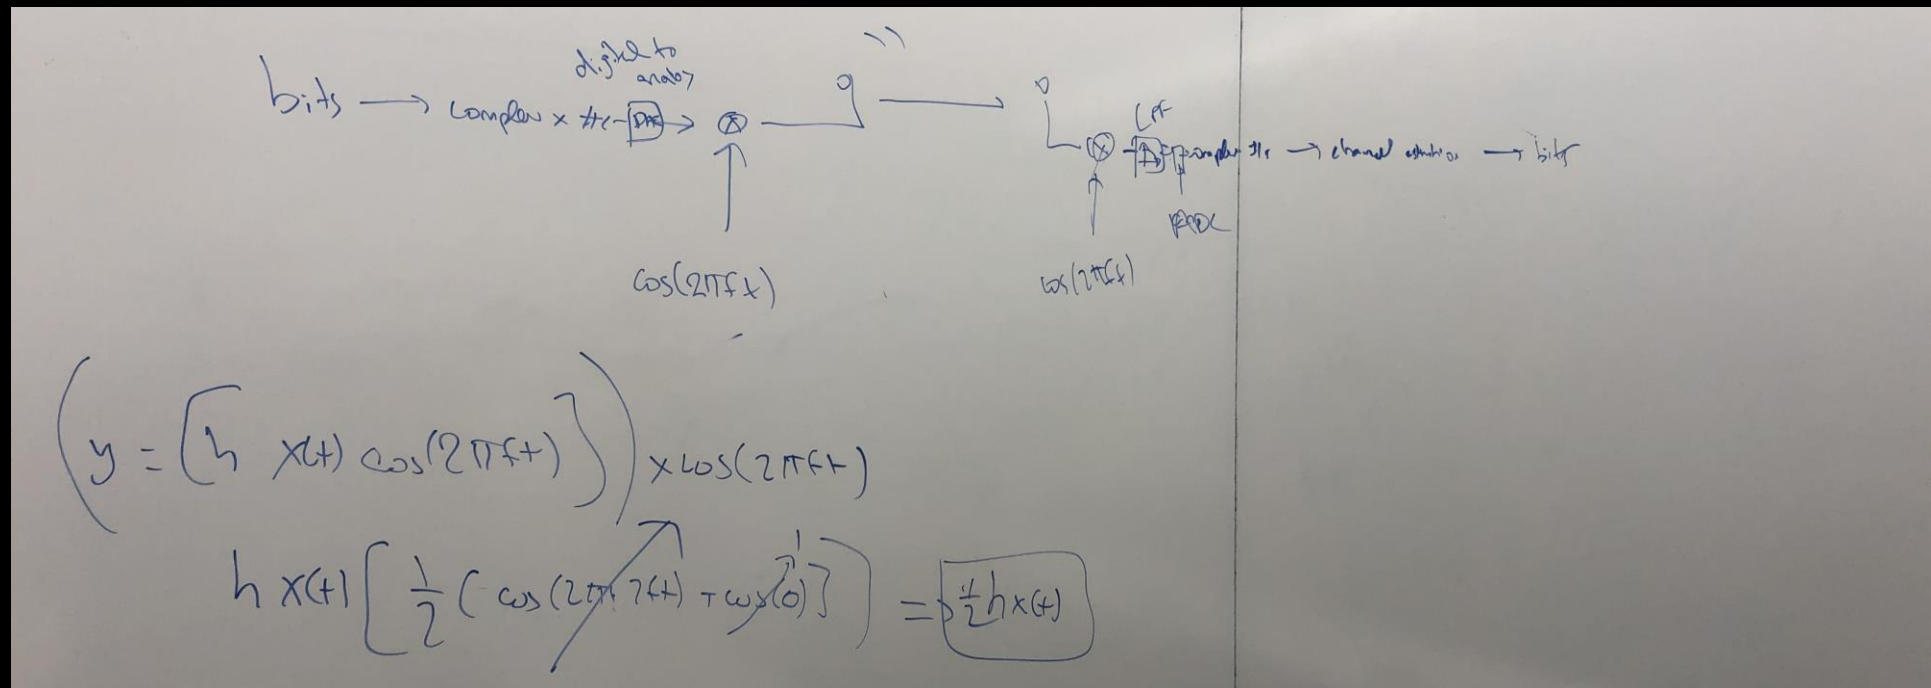 digital to
analog
bits → complex x #s DAC → ⊗
LPF
⊗ complex #s → channel estimation → bits
ADC
cos(2πft)
cos(2πft)
(y = [h x(t) cos(2πft)]) x cos(2πft)
h x(t) [1/2 (cos(2π·2ft) + cos(0))] = 1/2 h x(t)
1